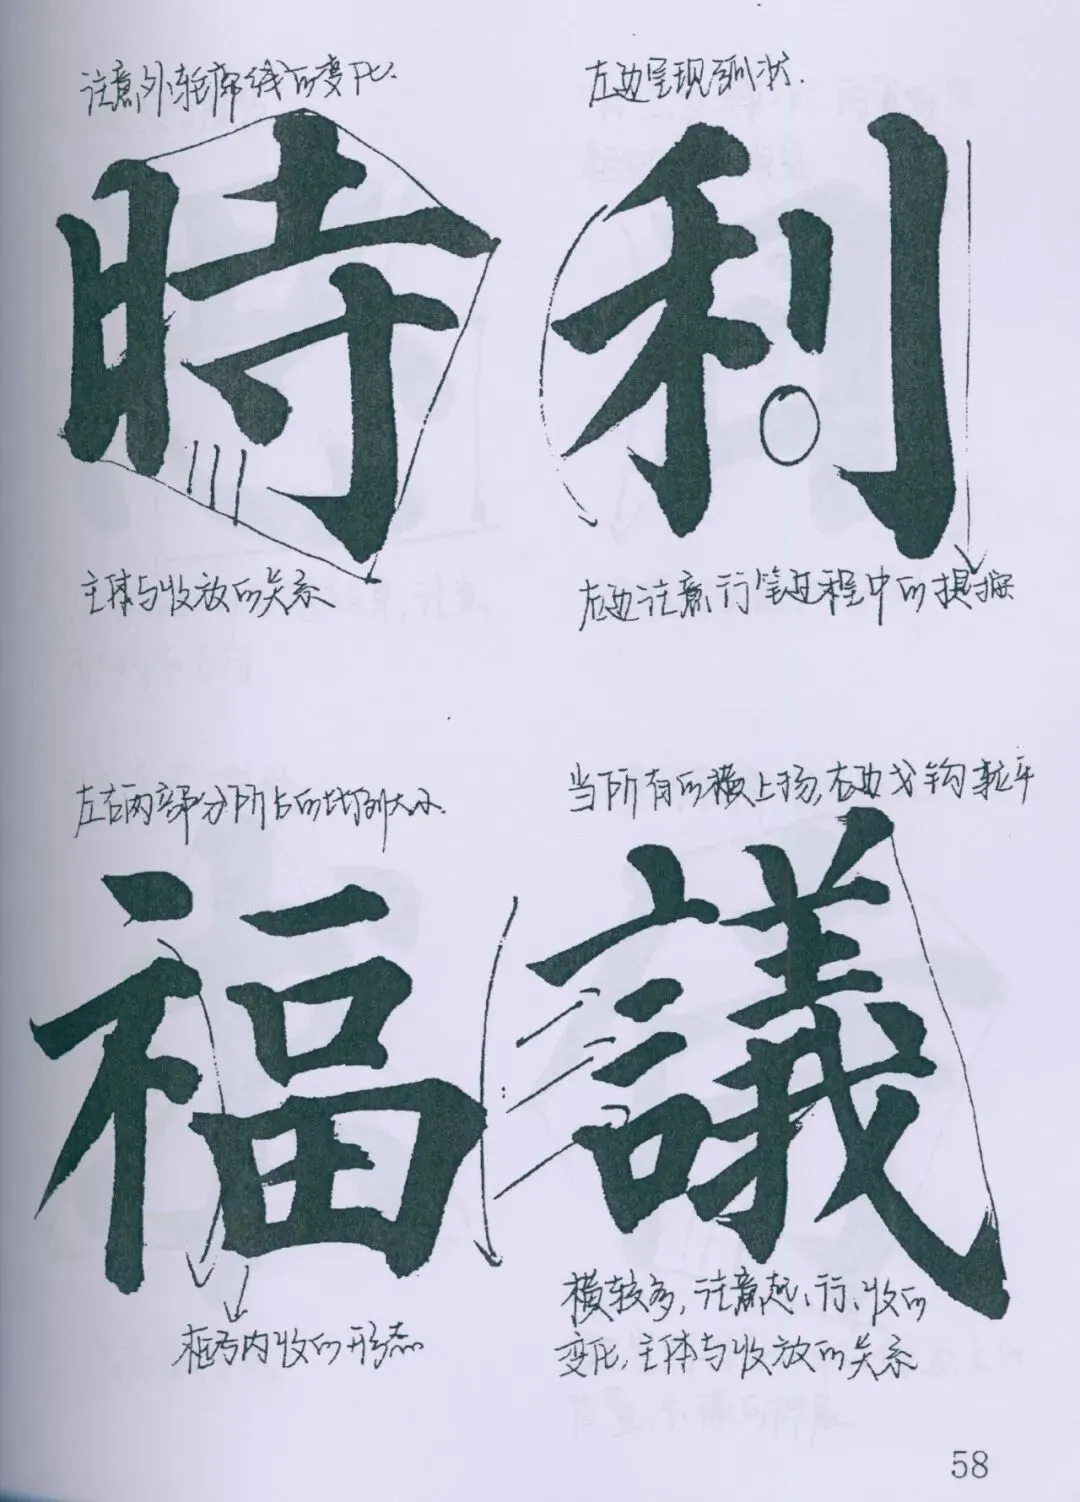 注意外轮廓线的变化.
左边呈现弧状.
時
利
主体与收放的关系
左边注意,行笔过程中的提按
左右两部分所占的比例大小.
当所有的横上扬,右边戈钩
福
議
框与内收的形态
横较多,注意起、行、收的
变化,主体与收放的关系
58